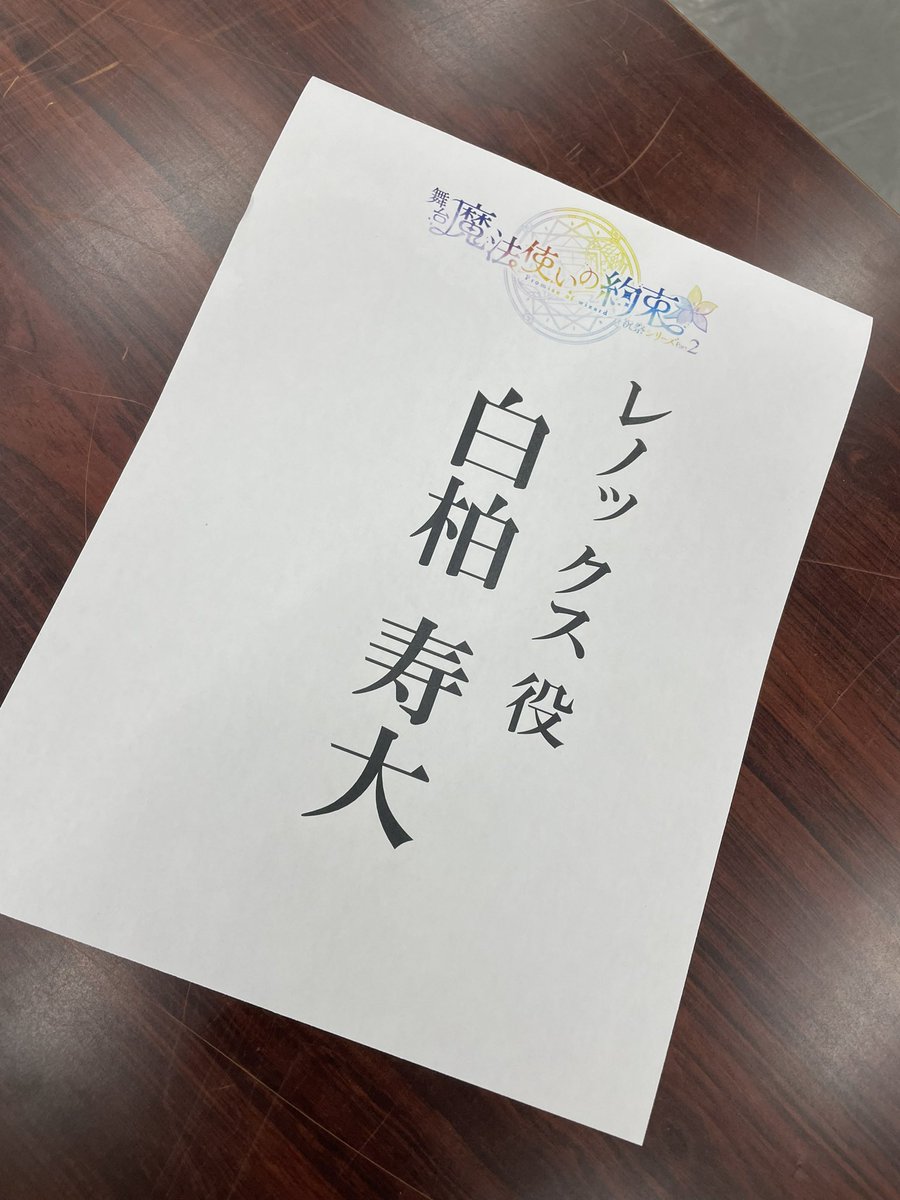 舞台
魔法使いの約束
Promise of wizard
祝祭シリーズPart2
レノックス 役
白柏 寿大